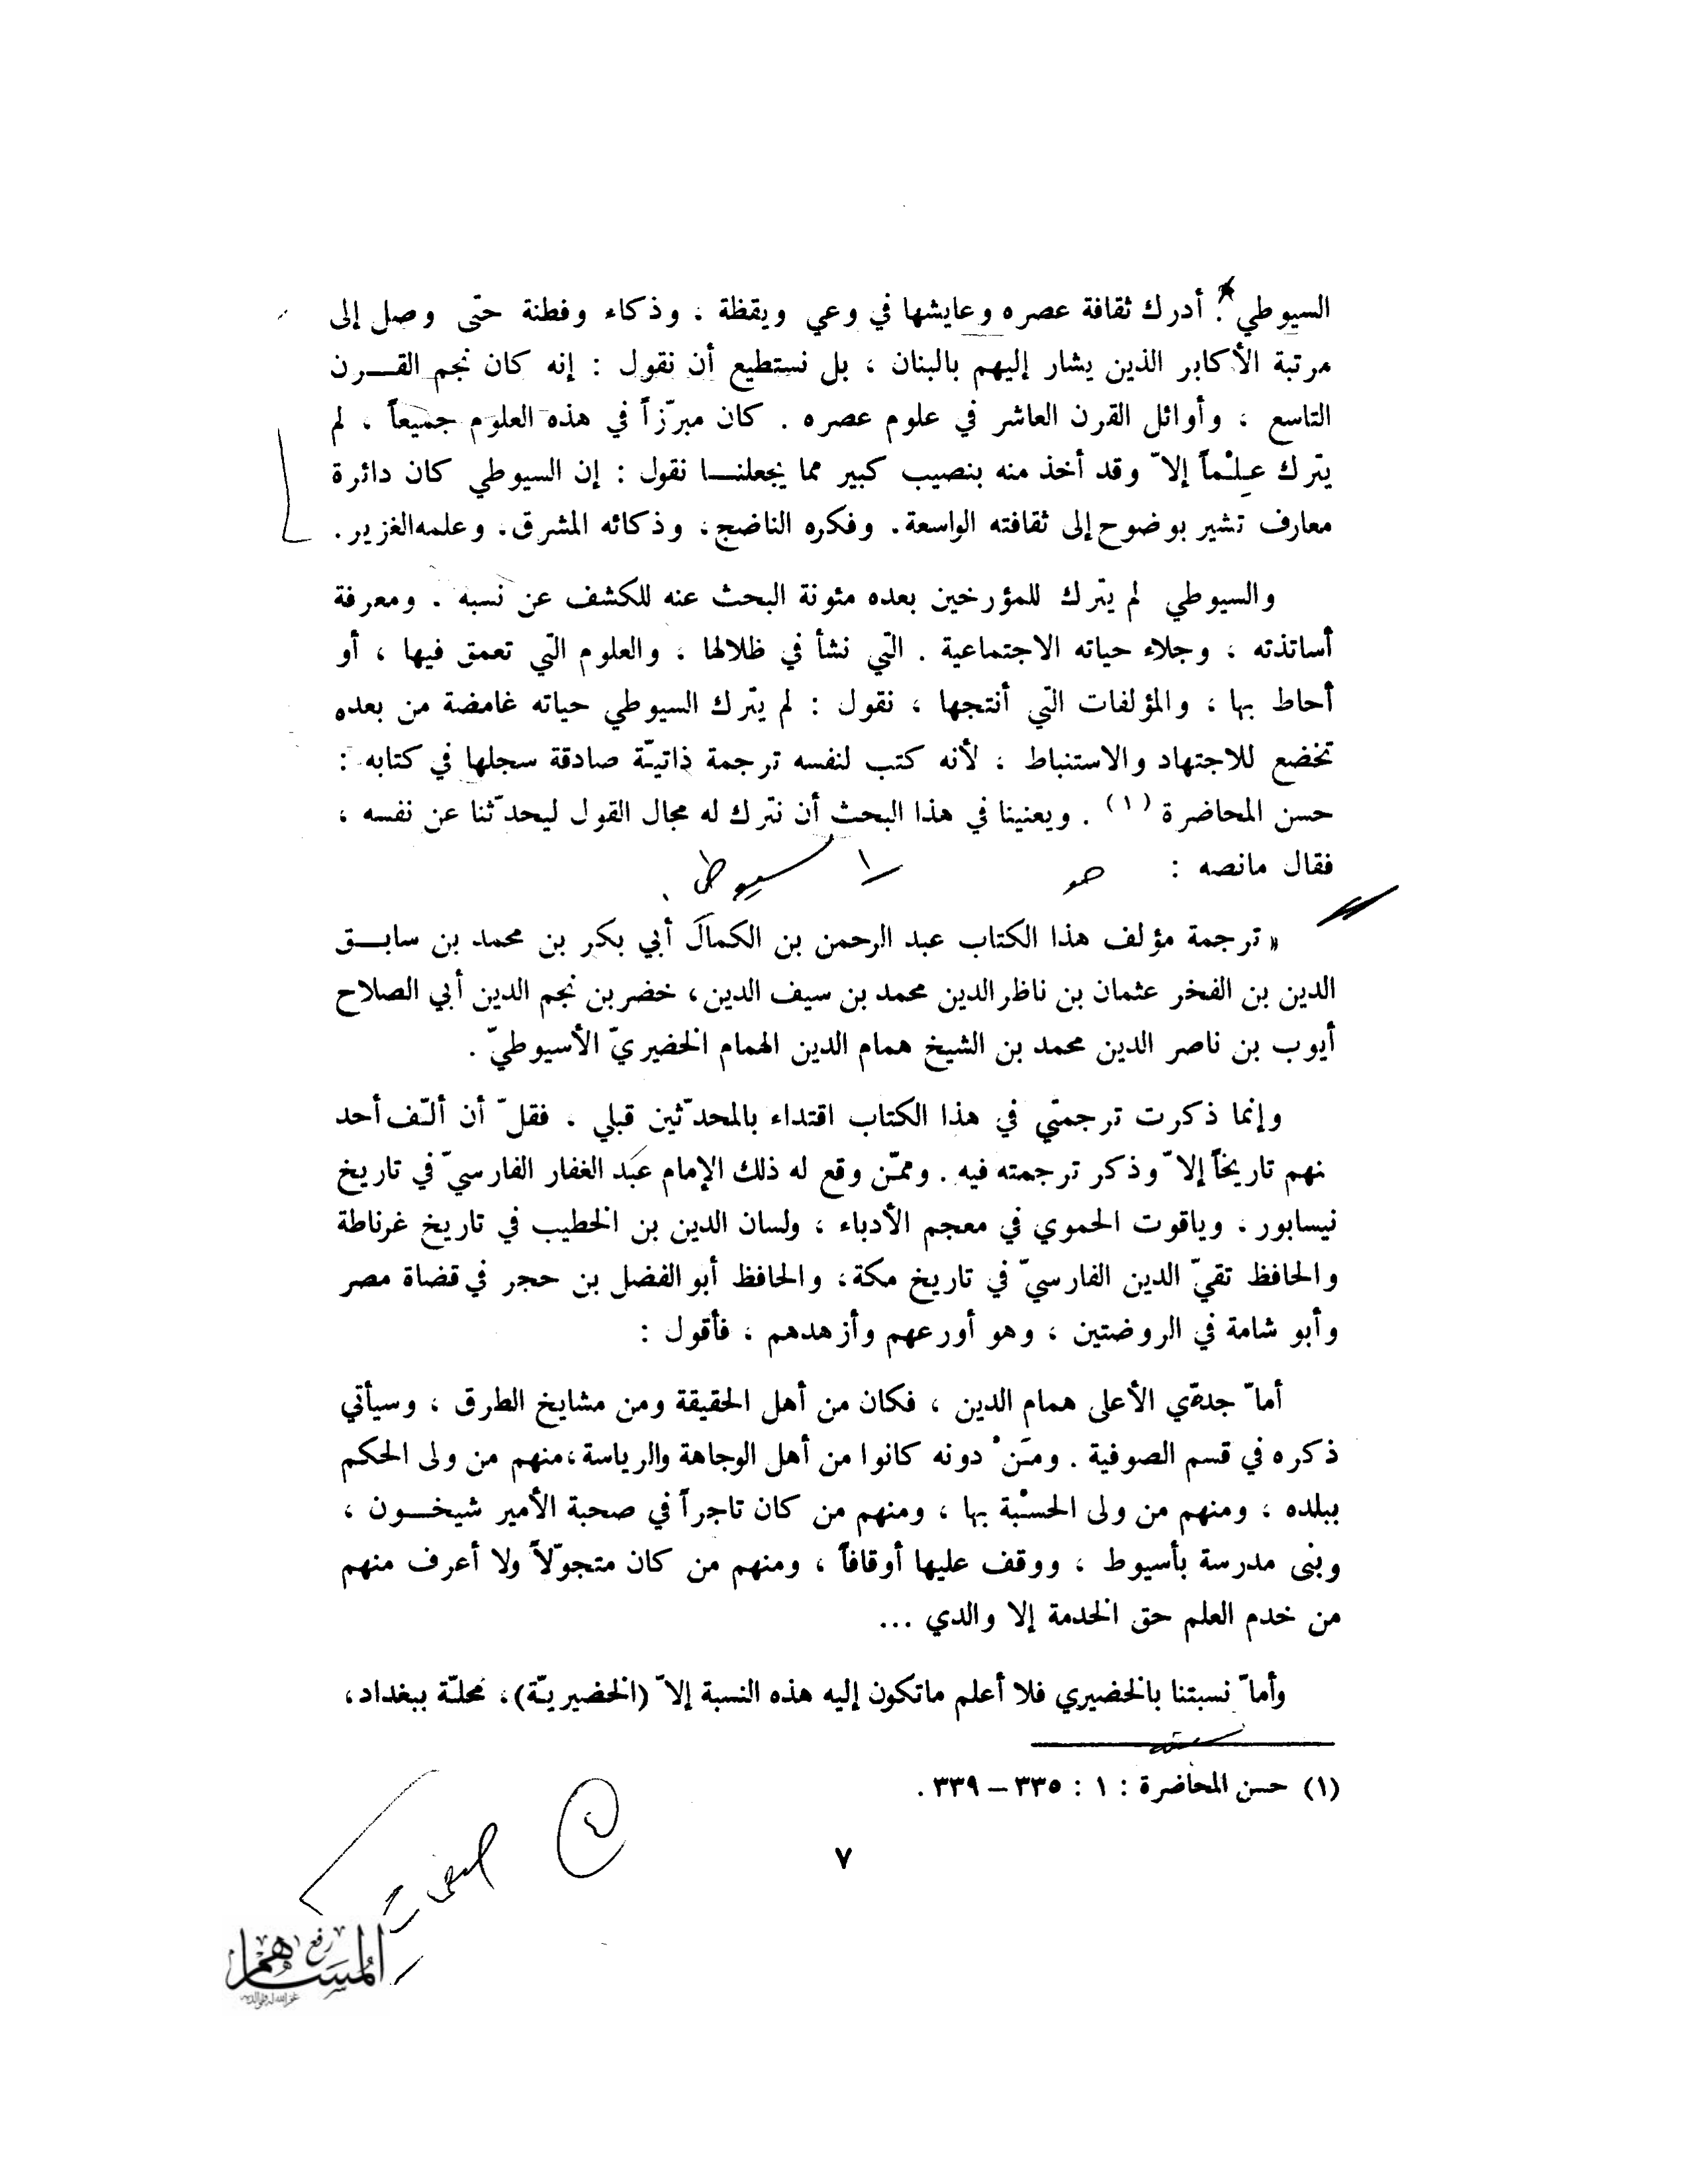 السيوطي : أدرك ثقافة عصره وعايشها في وعي ويقظة ، وذكاء وفطنة حتّى وصل إلى
مرتبة الأكابر الذين يشار إليهم بالبنان ، بل نستطيع أن نقول : إنه كان نجم القـــرن
التاسع ، وأوائل القرن العاشر في علوم عصره . كان مبرّزاً في هذه العلوم جميعاً ، لم
يترك عِلْماً إلاّ وقد أخذ منه بنصيب كبير مما يجعلنـــا نقول : إن السيوطي كان دائرة
معارف تشير بوضوح إلى ثقافته الواسعة ، وفكره الناضج ، وذكائه المشرق ، وعلمه الغزير .
والسيوطي لم يترك للمؤرخين بعده مئونة البحث عنه للكشف عن نسبه . ومعرفة
أساتذته ، وجلاء حياته الاجتماعية . الّتي نشأ في ظلالها ، والعلوم الّتي تعمق فيها ، أو
أحاط بها ، والمؤلفات الّتي أنتجها ، نقول : لم يترك السيوطي حياته غامضة من بعده
تخضع للاجتهاد والاستنباط ، لأنه كتب لنفسه ترجمة ذاتيّة صادقة سجلها في كتابه :
حسن المحاضرة (١) . ويعنينا في هذا البحث أن نترك له مجال القول ليحدّثنا عن نفسه ،
فقال مانصه : هو السيوطي .
« ترجمة مؤلف هذا الكتاب عبد الرحمن بن الكمال أبي بكر بن محمد بن سابـــق
الدين بن الفخر عثمان بن ناظر الدين محمد بن سيف الدين ، خضر بن نجم الدين أبي الصلاح
أيوب بن ناصر الدين محمد بن الشيخ همام الدين الهمام الخضيريّ الأسيوطيّ .
وإنما ذكرت ترجمتي في هذا الكتاب اقتداء بالمحدّثين قبلي . فقلّ أن ألّف أحد
نهم تاريخاً إلاّ وذكر ترجمته فيه . وممّن وقع له ذلك الإمام عبد الغفار الفارسيّ في تاريخ
نيسابور . وياقوت الحموي في معجم الأدباء ، ولسان الدين بن الخطيب في تاريخ غرناطة
والحافظ تقيّ الدين الفارسيّ في تاريخ مكة ، والحافظ أبو الفضل بن حجر في قضاة مصر
وأبو شامة في الروضتين ، وهو أورعهم وأزهدهم ، فأقول :
أماّ جدّي الأعلى همام الدين ، فكان من أهل الحقيقة ومن مشايخ الطرق ، وسيأتي
ذكره في قسم الصوفية . ومَنْ دونه كانوا من أهل الوجاهة والرياسة ، منهم من ولى الحكم
ببلده ، ومنهم من ولى الحسْبة بها ، ومنهم من كان تاجراً في صحبة الأمير شيخـــون ،
وبنى مدرسة بأسيوط ، ووقف عليها أوقافاً ، ومنهم من كان متجوّلاً ولا أعرف منهم
من خدم العلم حق الخدمة إلا والدي ...
وأماّ نسبتنا بالخضيري فلا أعلم ماتكون إليه هذه النسبة إلاّ (الخضيريّة) ، محلّة ببغداد ،
(١) حسن المحاضرة : ١ : ٣٣٥ – ٣٣٩ .
٧
رفع المساهم